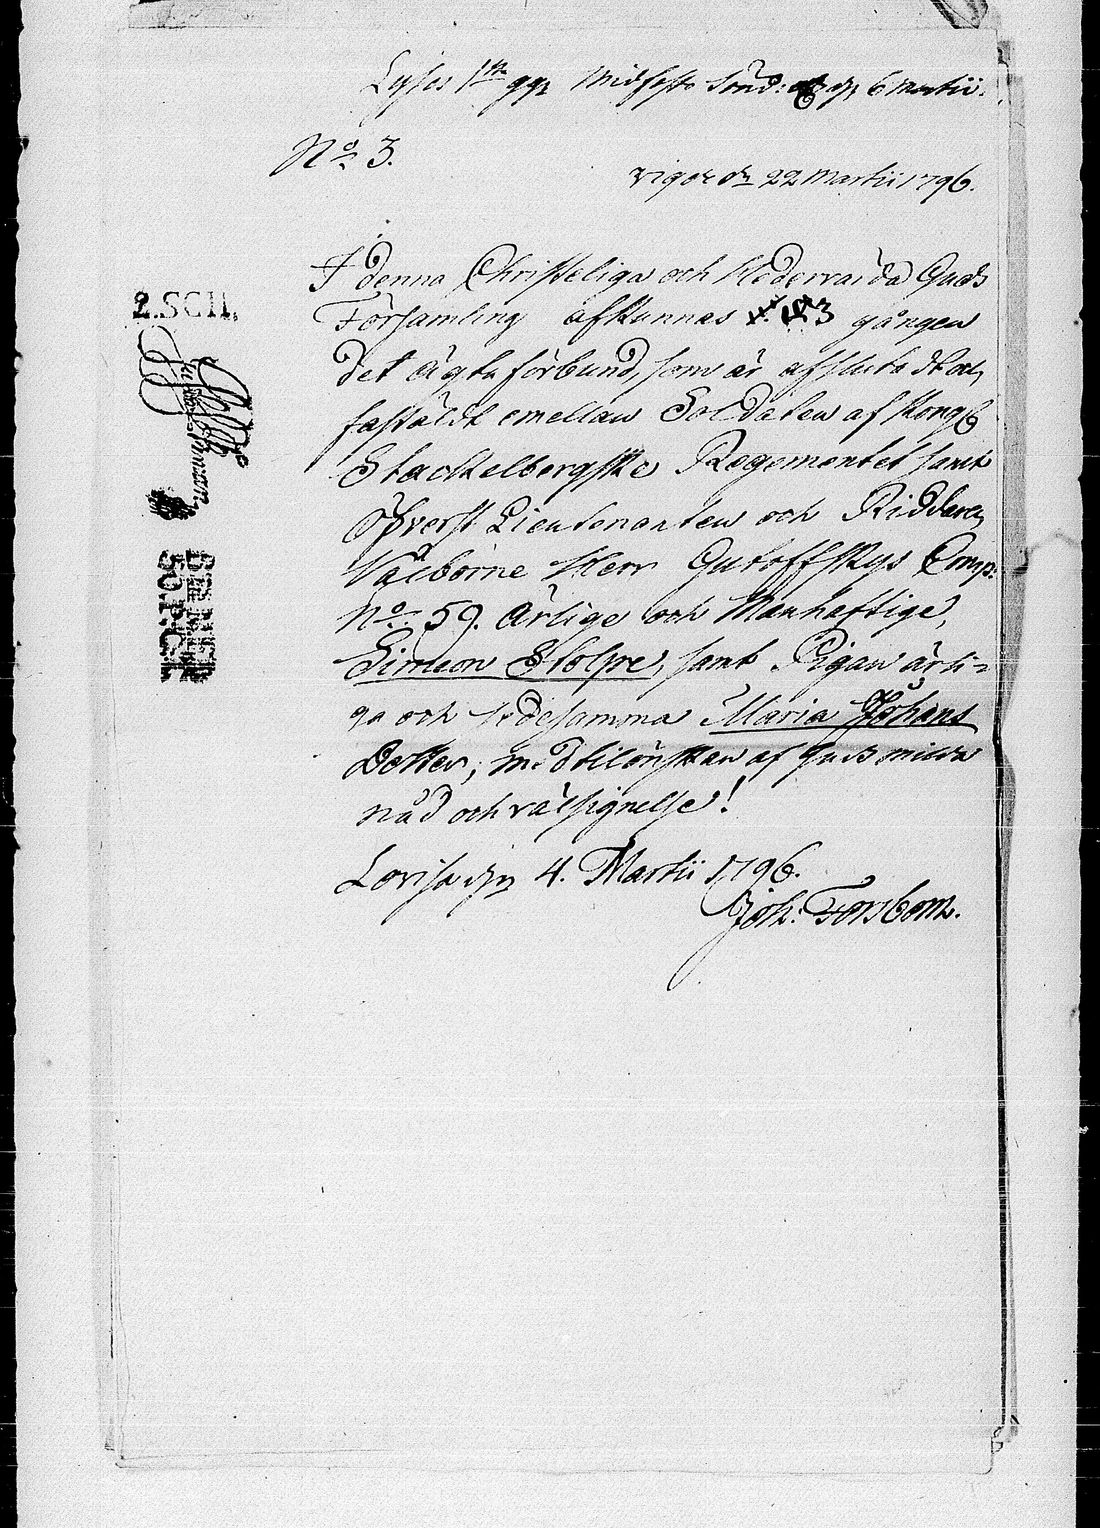 Lyses 1sta ggn Midfasto Sönd: d. 6 Martii.
No 3.
vigde dn 22 Martii 1796.
I denna Christeliga och Hedervärda Guds
Församling afkunnas 3 gången
det ägta förbund, som är afslutadt och
fastäldt emellan Soldaten af Kongl
Stackelbergske Regementet samt
Öfverst Lieutenanten och Riddaren
Välborne Herr Gutoffskys Comp:
No 59. Ärlige och Manhaftige,
Simeon Stolpe, samt Pigan ärli-
ga och sedesamma Maria Johans
Dotter, med tilönskan af Guds milda
nåd och välsignelse!
Lovisa den 4. Martii 1796.
Joh: Forsbom.
2.SCH.